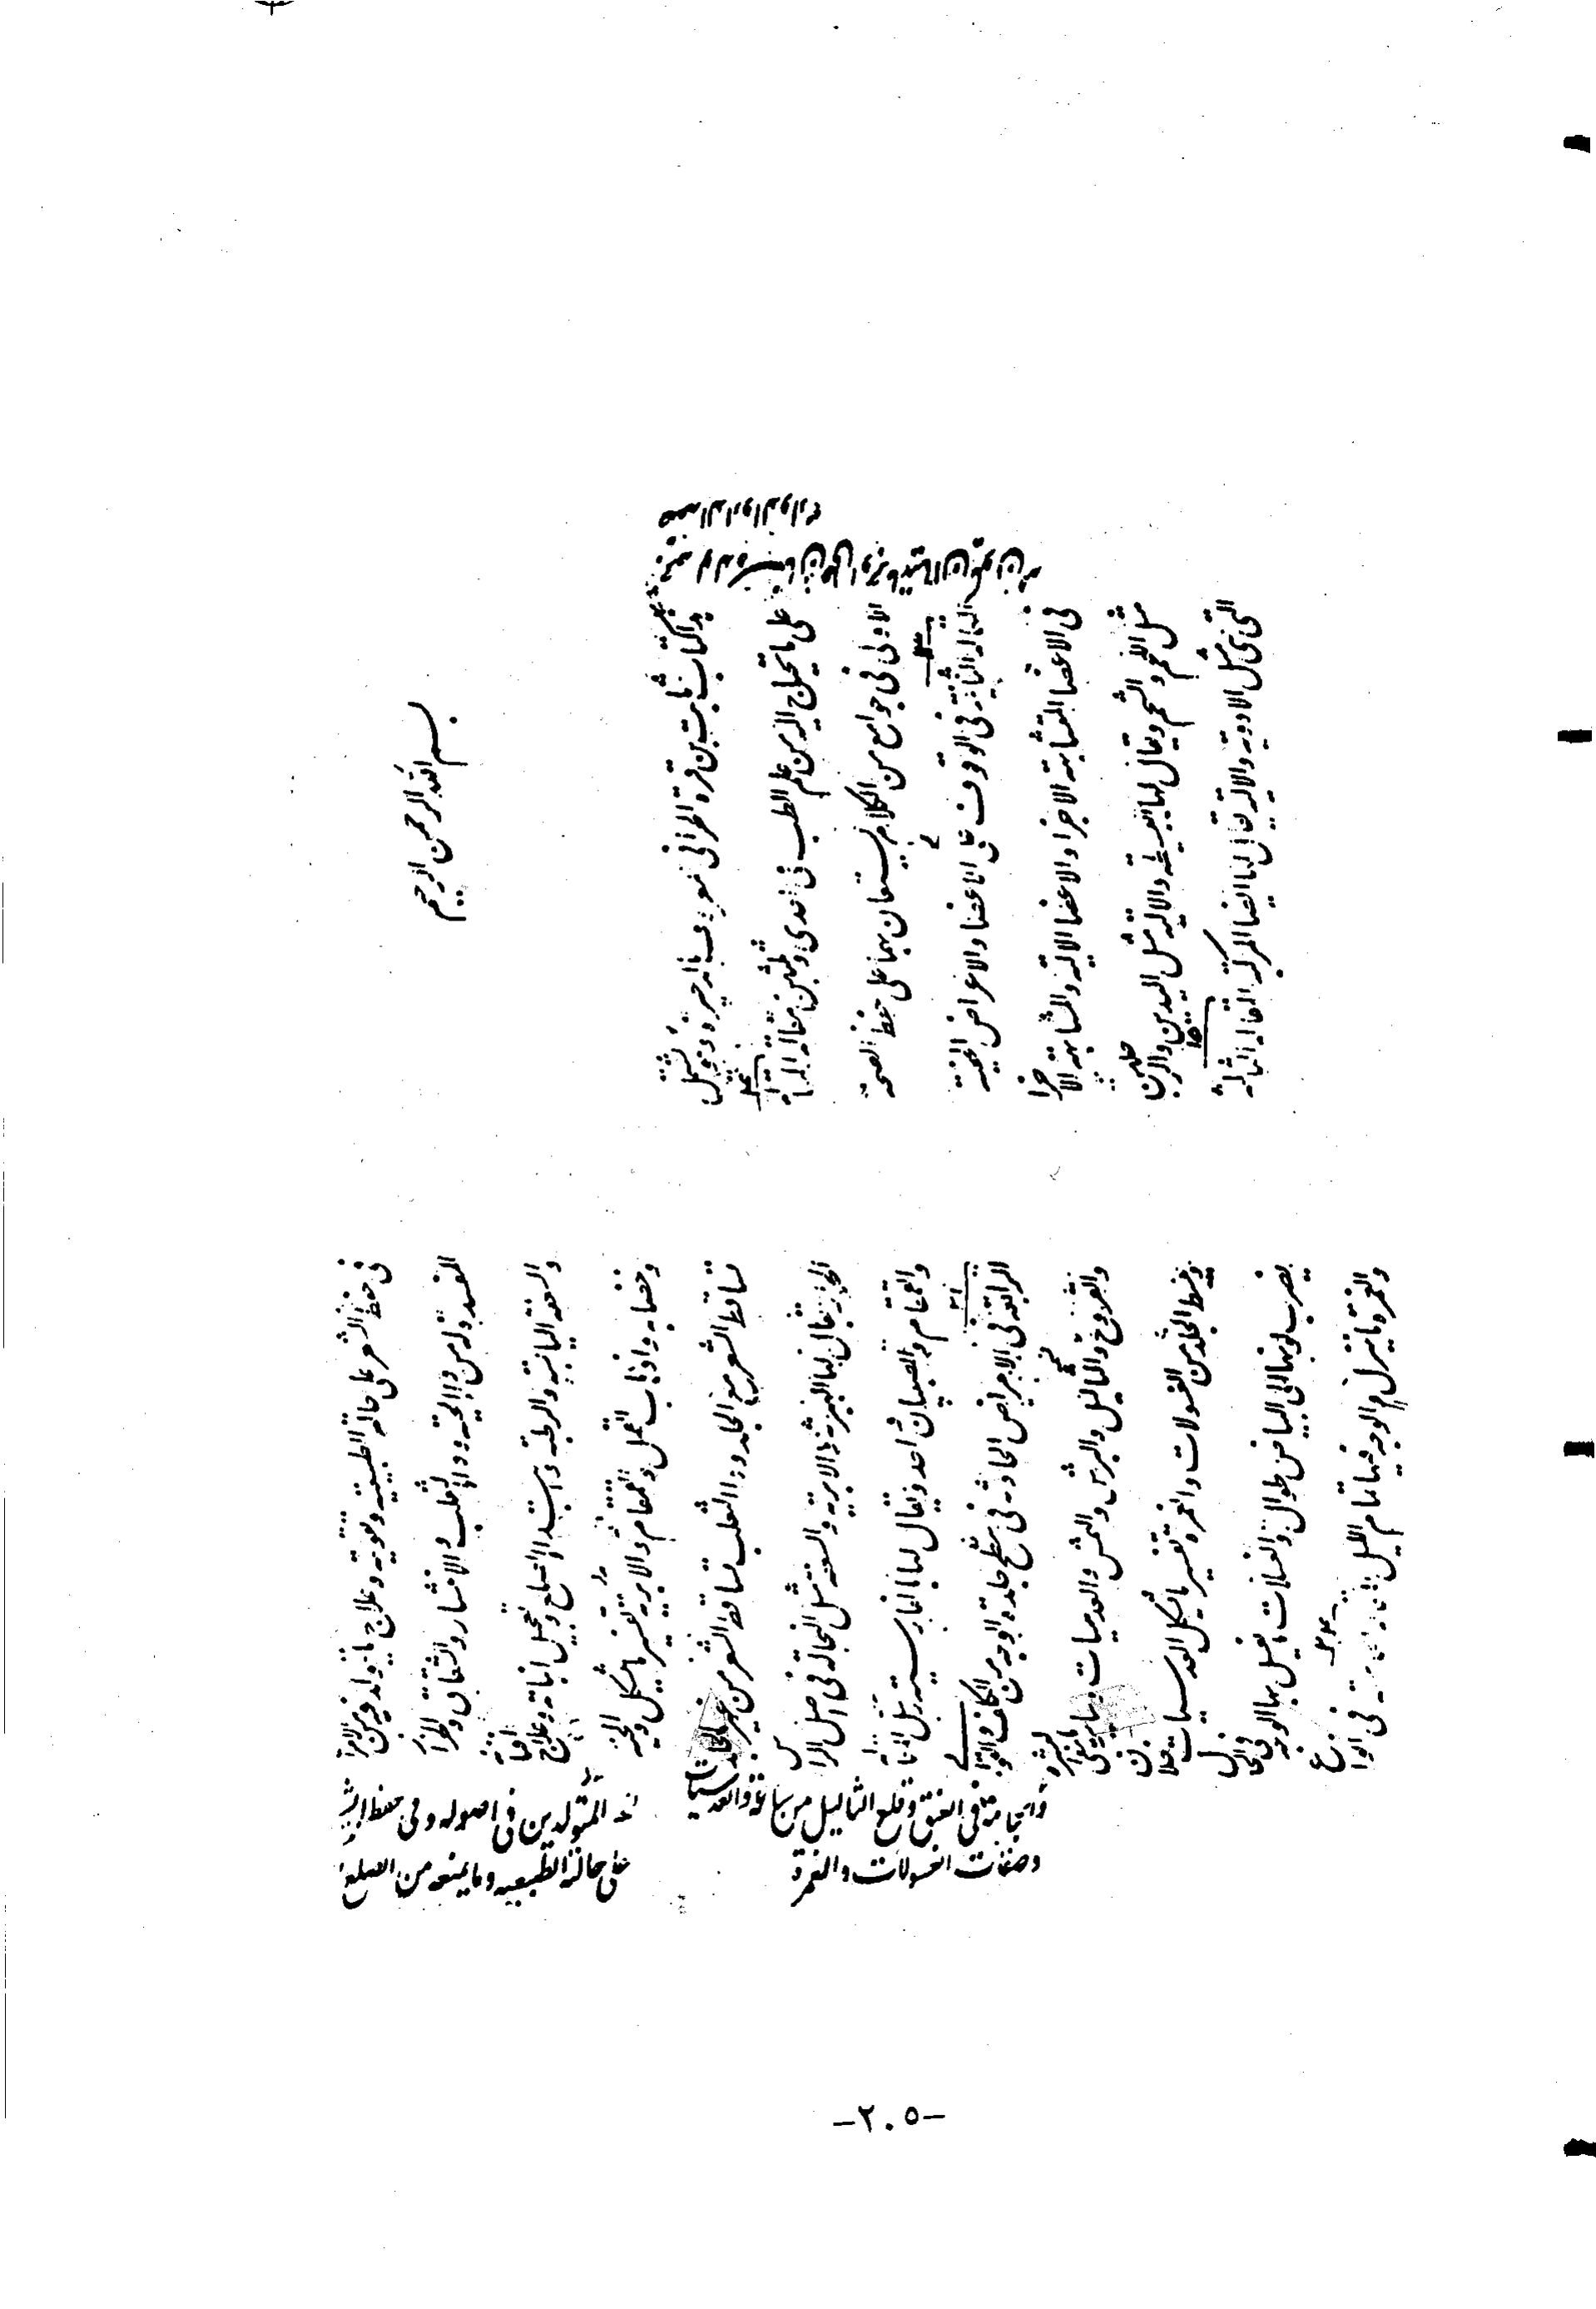 بسم الله الرحمن الرحيم
هذا كتاب ثابت بن قرة الحراني المعروف بالذخيرة وهو يشتمل
على ما يحتاج اليه من علم الطب في احدى وثلثين مقالة المقالة
الاولى في جوامع من الكلام يستعان بها على حفظ الصحة
المقالة الثانية في الوقوف على الاعضا والاعراض الخفية
في الاعضا المتشابهة الاجزاء والاعضا الالية والمتشابهة الاجزا
مثل اللحم والشحم ويقال لها البسيطة والالية مثل اليدين والرجلين
التي هي مثل الادوية والالية يقال لها ايضا المركبة المقالة الثالثة
في حفظ الشعر على حاله الطبيعية وتقويته وعلاج ما يتولد فيه من الامراض
المفسدة له من داء الحية وداء الثعلب والانتشار والشقاق والحزاز
والسعفة اليابسة والرطبة وابتداء الصلع وتعجيل انباته وعلاج افاته
وخضابه واذهاب القمل والقمقام والابرية تفسير ما يشكل داء الحية
تساقط الشعر مع الجلد وداء الثعلب تساقط الشعر من غير الجلد
الحزاز يقال لها الهبرية والابرية والسعفة مثل النخالة في اصل الراس
والقمقام والصيبان واحد ويقال لها بالفارسية رشك المقالة
الرابعة في الامراض الحادثة في سطح جلدة الوجه من الكلف والقوابي
والقروح والثاليل والبرش والنمش والعدسيات
وبسط الجلد من الغسولات والغمرة تفسير ما يشكل العدسيات خيلان
يضرب لونها الى البياض طوال والغسلات ما يغسل بها الوجه
والغمرة ما ينزل في الوجه فيها تمام الليل المقالة الخامسة في انواع
المتولدين في اصوله وفي حفظ
على حاله الطبيعية وما يمنع من الصلع
وقلع الثاليل من
وصفات الغسولات والغمر
-٢٠٥-